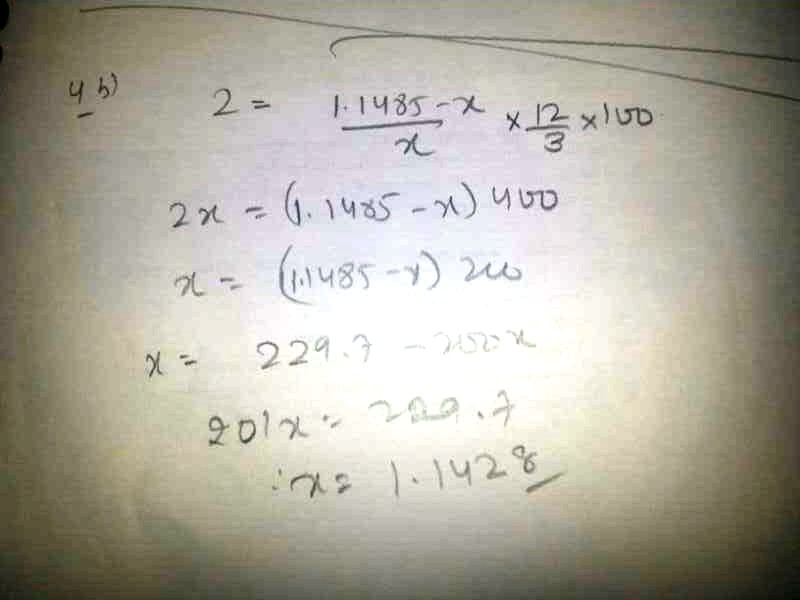 4 b) 2 = 1.1485-x / x × 12/3 × 100
2x = (1.1485 - x) 400
x = (1.1485 - x) 200
x = 229.7 - 200x
201x = 229.7
∴ x = 1.1428